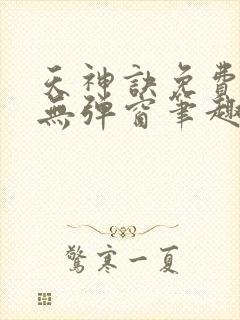 天神訣免費
無彈窗筆趣
驚寒一夏